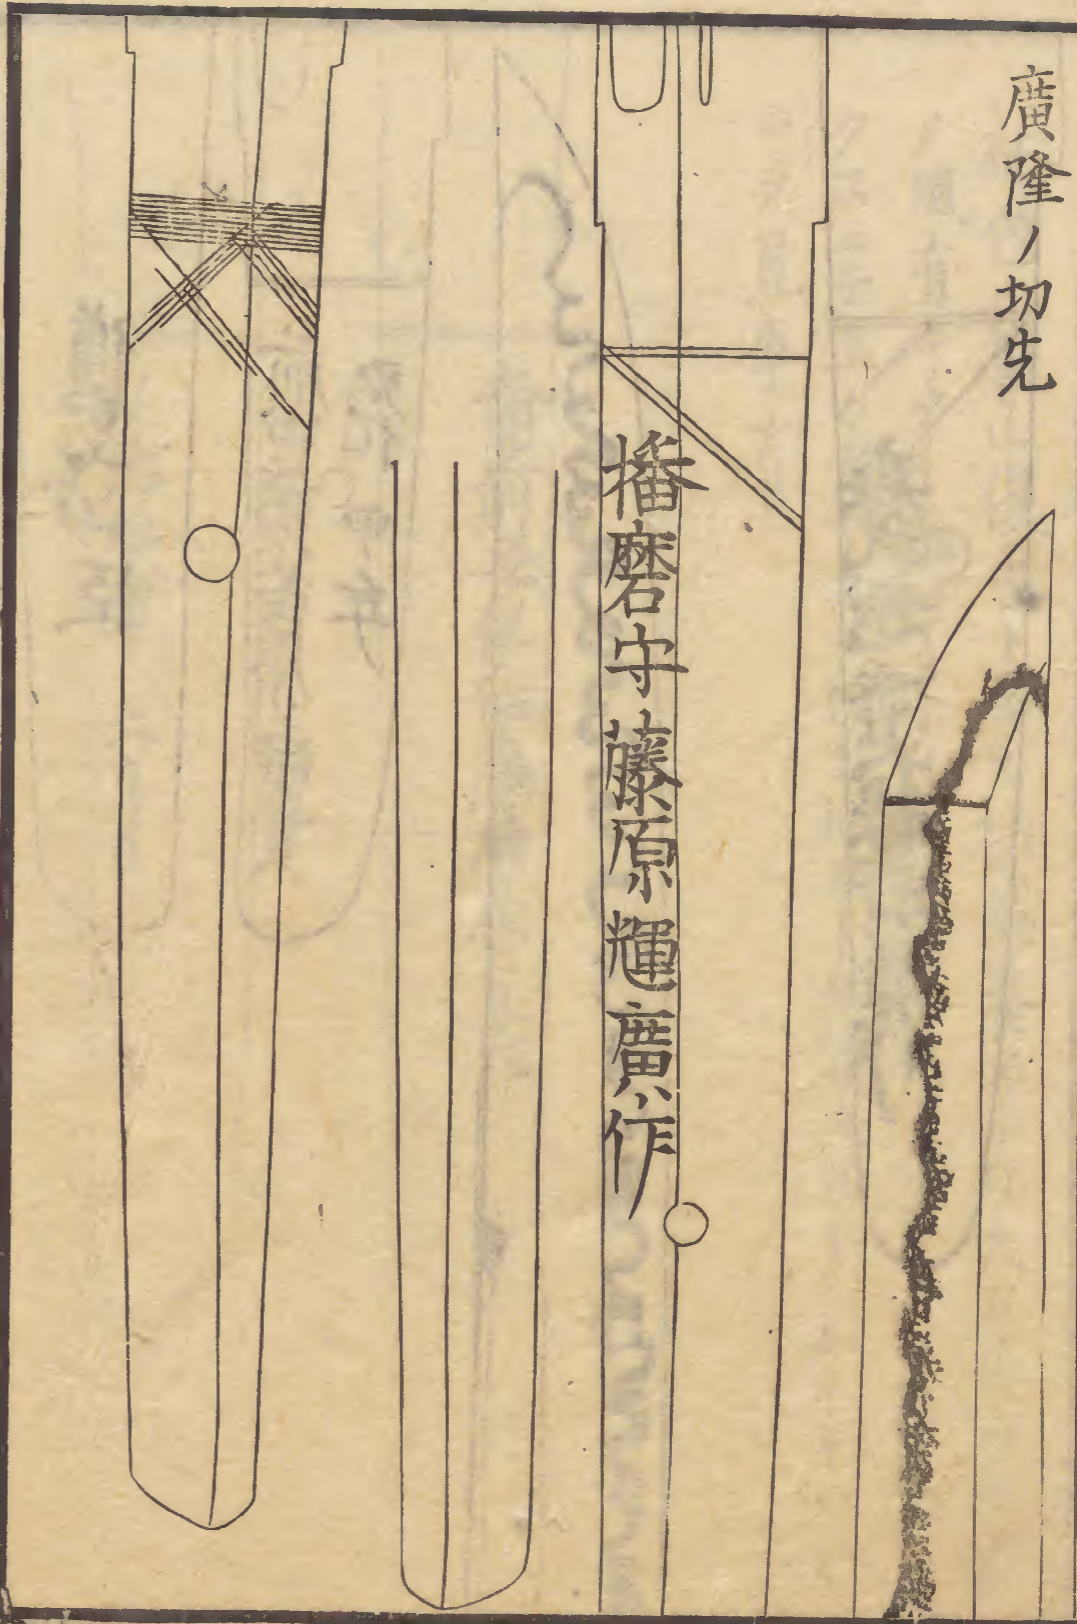 廣隆ノ切先
播磨守藤原輝廣作